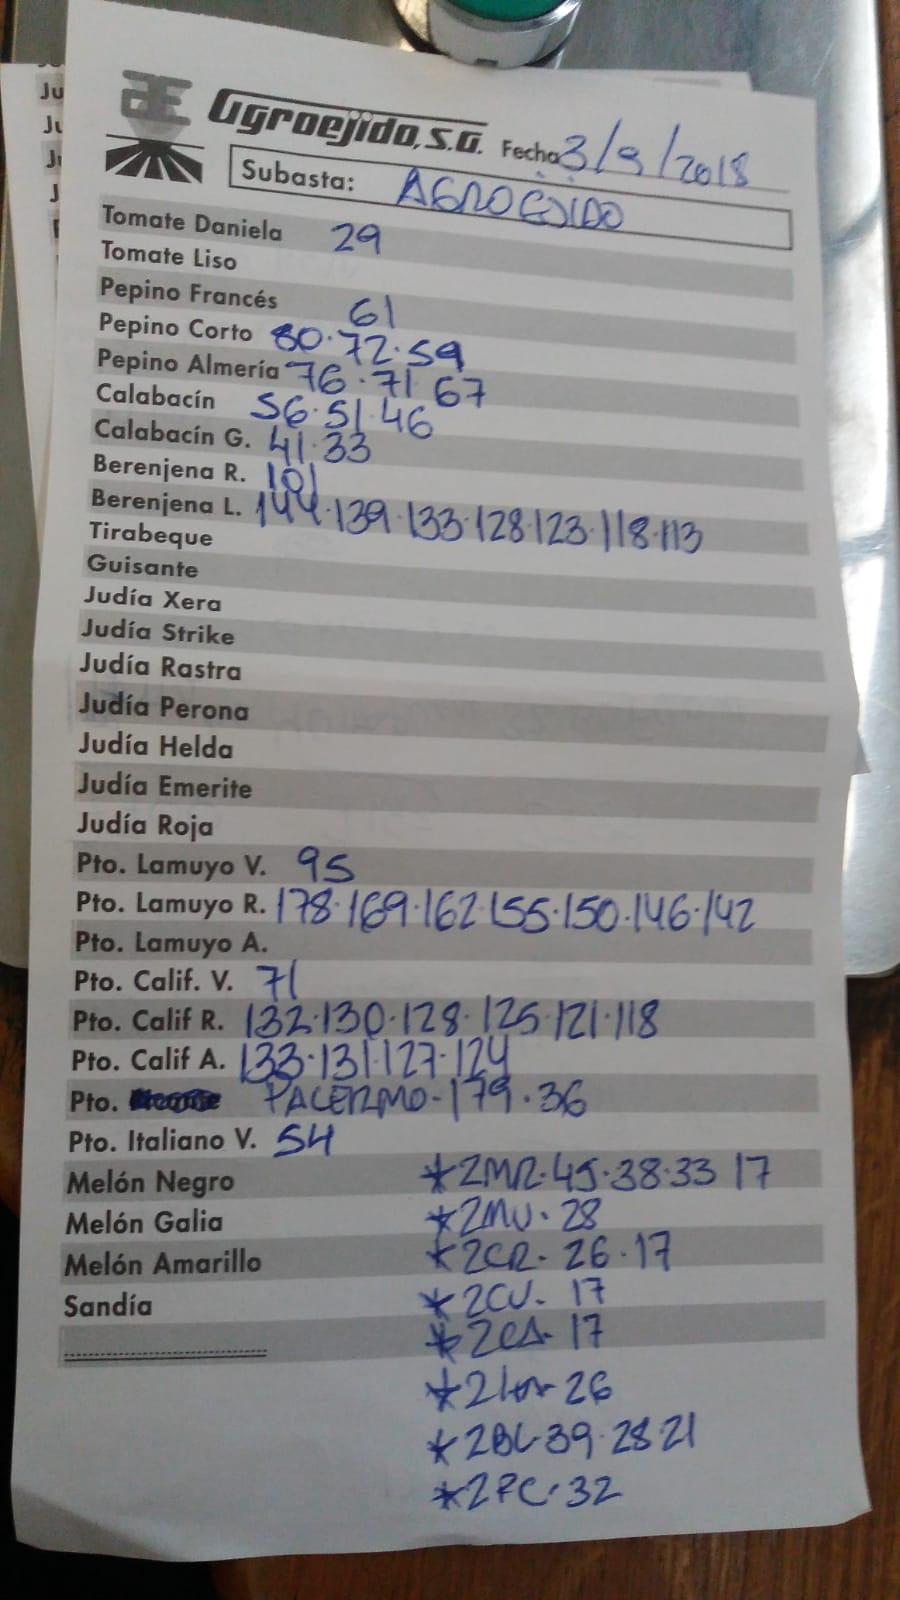 Agroejido, S.A. Fecha 3/9/2018
Subasta: AGROEJIDO
Tomate Daniela 29
Tomate Liso
Pepino Francés 61
Pepino Corto 80·72·59
Pepino Almería 76·71 67
Calabacín 56·51·46
Calabacín G. 41·33
Berenjena R. 101
Berenjena L. 144·139·133·128·123·118·113
Tirabeque
Guisante
Judía Xera
Judía Strike
Judía Rastra
Judía Perona
Judía Helda
Judía Emerite
Judía Roja
Pto. Lamuyo V. 95
Pto. Lamuyo R. 178·169·162·155·150·146·142
Pto. Lamuyo A.
Pto. Calif. V. 71
Pto. Calif R. 132·130·128·125·121·118
Pto. Calif A. 133·131·127·124
Pto. PALERMO-179·36
Pto. Italiano V. 54
Melón Negro *2MR·45·38·33 17
Melón Galia *2MV· 28
Melón Amarillo *2CR- 26·17
Sandía *2CV- 17
*2CA- 17
26
*2BL-39·28·21
*2PC·32
Ju
Ju
Ju
J